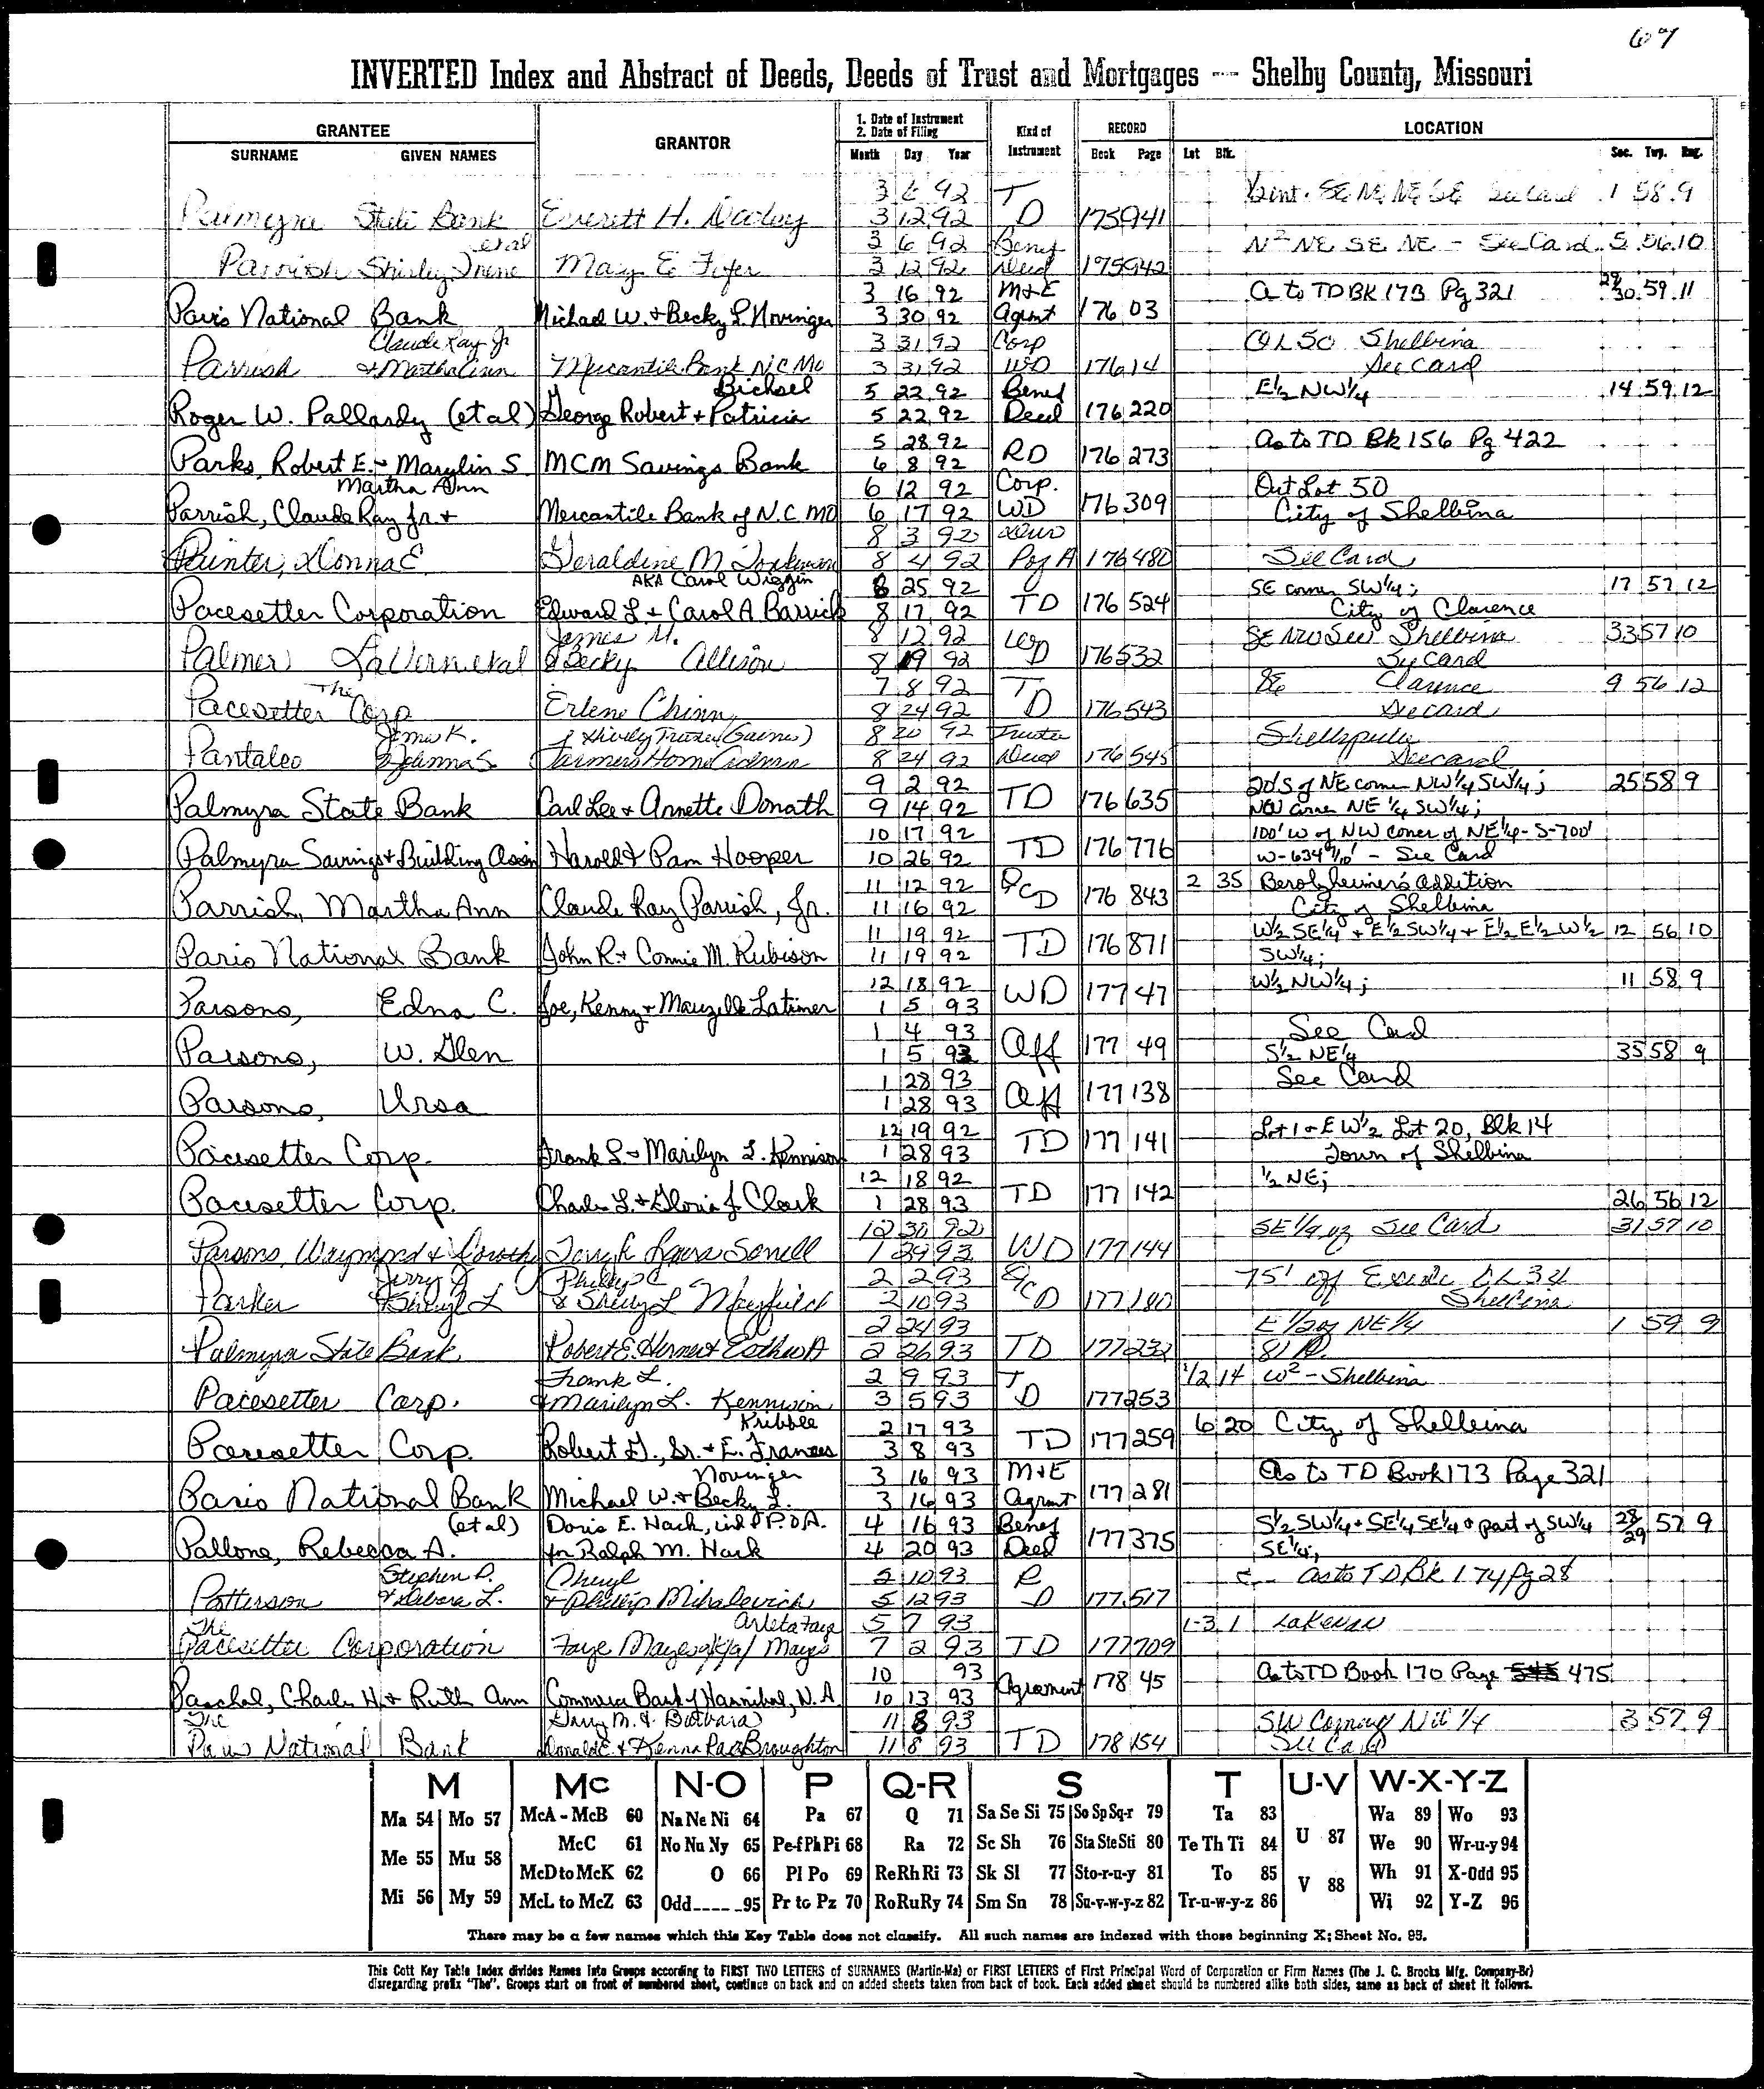 67
INVERTED Index and Abstract of Deeds, Deeds of Trust and Mortgages — Shelby County, Missouri
GRANTEE
SURNAME GIVEN NAMES
GRANTOR
1. Date of Instrument
2. Date of Filing
Month Day Year
Kind of Instrument
RECORD
Book Page
LOCATION
Lot Blk. Sec. Twp. Rng.
3 6 92 T SE NE NE SE See Card 1 58 9
Palmyra State Bank Everett H. 3 12 92 D 175 941
et al 3 6 92 Benef N² NE SE NE - See Card 5 56 10
Parrish Shirley Irene May E. 3 12 92 Deed 175 942
3 16 92 M+E As to TD BK 173 Pg 321 29/30 59 11
Paris National Bank Michael W. + Becky L. Novinger 3 30 92 Agmt 176 03
Claude Ray Jr 3 31 92 Corp OL 50 Shelbina
Parrish & Martha Ann Mercantile Bank N C Mo 3 31 92 WD 176 14 See Card
Bichsel 5 22 92 Benef E½ NW¼ 14 59 12
Roger W. Pallardy (et al) George Robert + Patricia 5 22 92 Deed 176 220
5 28 92 As to TD Bk 156 Pg 422
Parks, Robert E. + Marylin S. MCM Savings Bank 6 8 92 RD 176 273
Martha Ann 6 12 92 Corp. Out Lot 50
Parrish, Claude Ray Jr. + Mercantile Bank of N.C. MO 6 17 92 WD 176 309 City of Shelbina
8 3 92 Dur
Painter, Donna E. Geraldine M. 8 4 92 P of A 176 480 See Card
AKA Carol Wiggin 8 25 92 SE corner SW¼; 17 57 12
Pacesetter Corporation Edward L. + Carol A Barrick 8 17 92 TD 176 524 City of Clarence
James M. 8 12 92 SE NW See Shelbina 33 57 10
Palmer LaVern et al & Becky Allison 8 19 92 WD 176 532 See Card
The 7 8 92 T SE Clarence 9 56 12
Pacesetter Corp Erlene Chinn 8 24 92 D 176 543 See card
James K. Shirly (Gaines) 8 20 92 Trustee
Pantaleo & Johnna S Farmers Home Admn 8 24 92 Deed 176 545 See card
9 2 92 20' S of NE corner NW¼ SW¼; 25 58 9
Palmyra State Bank Carl Lee + Annette Donath 9 14 92 TD 176 635 NW corner NE ¼ SW¼;
10 17 92 100' W of NW coner of NE¼ - S-700'
Palmyra Savings + Building Assn Harold & Pam Hooper 10 26 92 TD 176 776 W-634 7/10' - See Card
11 12 92 2 35 Berolzheimer's Addition
Parrish, Martha Ann Claude Ray Parrish, Jr. 11 16 92 QCD 176 843 City of Shelbina
11 19 92 W½ SE¼ + E½ SW¼ + E½ E½ W½ 12 56 10
Paris National Bank John R. + Connie M. Rubison 11 19 92 TD 176 871 SW¼;
12 18 92 W½ NW¼; 11 58 9
Parsons, Edna C. Joe, Kenny + Mauzelle Latimer 1 5 93 WD 177 47
1 4 93 See Card
Parsons, W. Glen 1 5 93 Aff 177 49 S½ NE¼ 35 58 9
1 28 93 See Card
Parsons, Ursa 1 28 93 Aff 177 138
12 19 92 Lot 1 + E W½ Lot 20, Blk 14
Pacesetter Corp. Frank L. + Marilyn L. Kennison 1 28 93 TD 177 141 Town of Shelbina
12 18 92 ½ NE;
Pacesetter Corp. Charles L. + Gloria J. Clark 1 28 93 TD 177 142 26 56 12
12 30 92 SE 1/4 of See Card 31 57 10
Parsons, Waymond & Dorothy Terry & Laura Sorrell 1 29 93 WD 177 144
Jerry J Phillip C 2 2 93 75' off E side OL 34
Parker & Sheryl L & Sherry L Mayfield 2 10 93 QCD 177 180 Shelbina
2 24 93 E 1/2 of NE 1/4 1 59 9
Palmyra State Bank Robert E. Herner & Esther A 2 26 93 TD 177 232
Frank L. 2 9 93 T 1/2 14 W² - Shelbina
Pacesetter Corp. & Marilyn L. Kennison 3 5 93 D 177 253
Kribble 2 17 93 6 20 City of Shelbina
Pacesetter Corp. Robert F., Sr. + E. Frances 3 8 93 TD 177 259
Novinger 3 16 93 M+E As to TD Book 173 Page 321
Paris National Bank Michael W. + Becky L. 3 16 93 Agrmt 177 281
(et al) Doris E. Hack, ind & P.O.A. 4 16 93 Benef S½ SW¼ + SE¼ SE¼ + part of SW¼ 28/29 57 9
Pallone, Rebecca A. for Ralph M. Hack 4 20 93 Deed 177 375 SE¼;
Stephen D. Cheryl 5 10 93 R As to TD Bk 174 Pg 28
Patterson & Debora L. & Phillip Mihalevich 5 12 93 D 177 517
The Arleta Faye 5 7 93 1-3 1 Lakenan
Pacesetter Corporation Faye Mayes a/k/a/ Mays 7 2 93 TD 177 709
10 93 As to TD Book 170 Page 545 475
Paschal, Charles H. + Ruth Ann Commerce Bank of Hannibal, N.A. 10 13 93 Agreement 178 45
The Gary M. & Barbara 11 8 93 SW Corner of NW 1/4 3 57 9
Paris National Bank Donald E. & Kenna Rae Broughton 11 8 93 TD 178 154 See Card
M Mc N-O P Q-R S T U-V W-X-Y-Z
Ma 54 Mo 57 McA - McB 60 Na Ne Ni 64 Pa 67 Q 71 Sa Se Si 75 So Sp Sq-r 79 Ta 83 U 87 Wa 89 Wo 93
McC 61 No Nu Ny 65 Pe-f Ph Pi 68 Ra 72 Sc Sh 76 Sta Ste Sti 80 Te Th Ti 84 We 90 Wr-u-y 94
Me 55 Mu 58 McD to McK 62 O 66 Pl Po 69 Re Rh Ri 73 Sk Sl 77 Sto-r-u-y 81 To 85 V 88 Wh 91 X-Odd 95
Mi 56 My 59 McL to McZ 63 Odd 95 Pr to Pz 70 Ro Ru Ry 74 Sm Sn 78 Su-v-w-y-z 82 Tr-u-w-y-z 86 Wi 92 Y-Z 96
There may be a few names which this Key Table does not classify. All such names are indexed with those beginning X; Sheet No. 95.
This Cott Key Table Index divides Names Into Groups according to FIRST TWO LETTERS of SURNAMES (Martin-Ma) or FIRST LETTERS of First Principal Word of Corporation or Firm Names (The J. C. Brooks Mfg. Company-Br)
disregarding prefix "The". Groups start on front of numbered sheet, continue on back and on added sheets taken from back of book. Each added sheet should be numbered alike both sides, same as back of sheet it follows.